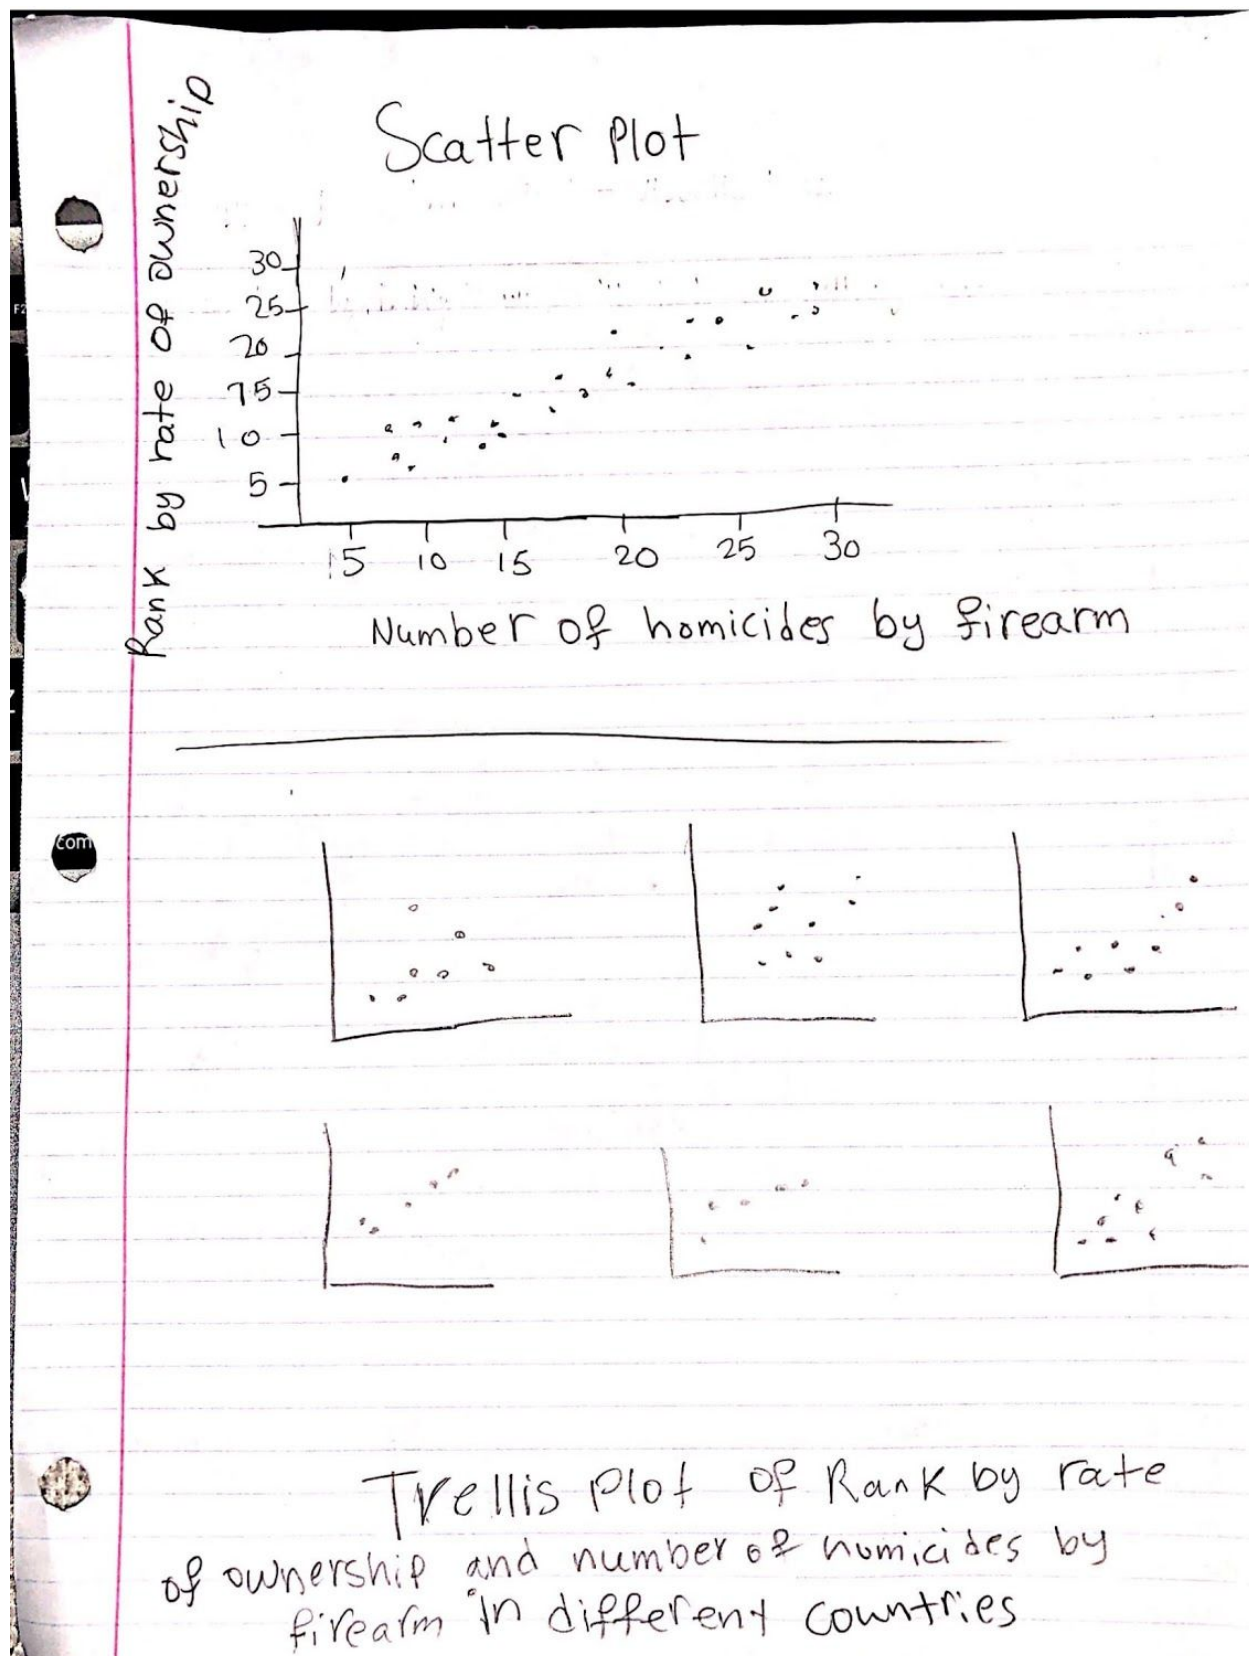 Scatter Plot
Rank by rate of ownership
30
25
20
15
10
5
5 10 15 20 25 30
Number of homicides by firearm
com
Trellis Plot of Rank by rate
of ownership and number of homicides by
firearm in different countries